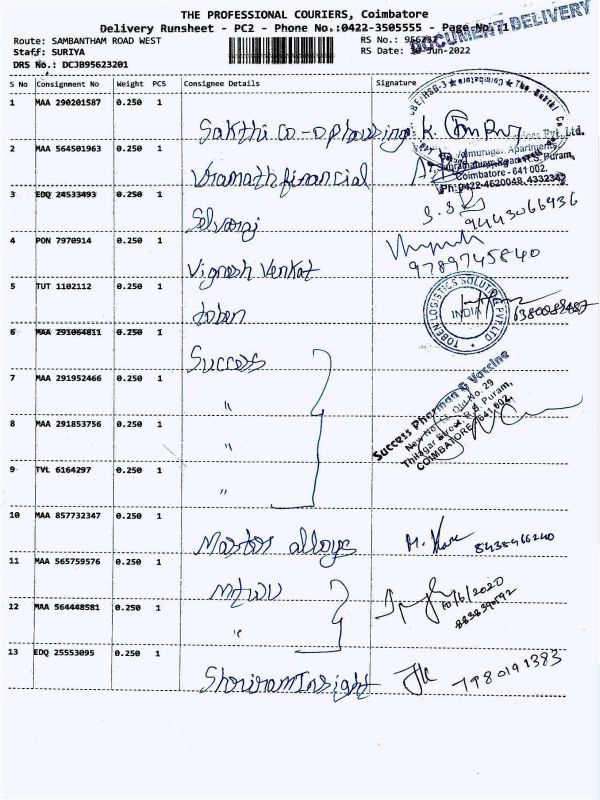 THE PROFESSIONAL COURIERS, Coimbatore
Delivery Runsheet - PC2 - Phone No.:0422-3505555 - Page No.:1
DOCUMENT DELIVERY
Route: SAMBANTHAM ROAD WEST
RS No.:
Staff: SURIYA
RS Date: 10-Jun-2022
DRS No.: DCJB95623201
S No Consignment No Weight PCS Consignee Details Signature
1 MAA 290201587 0.250 1
Sakthi co-op housing
2 MAA 564501963 0.250 1
Apartments,
R.S. Puram,
Coimbatore - 641 002.
Ph: 0422-4520048, 4332342
Viamath financial
3 EDQ 24533493 0.250 1
Selvaraj
9443066436
4 PON 7970914 0.250 1
Vignesh Venkat
9789745840
5 TUT 1102112 0.250 1
toben
TOBEN LOGISTICS SOLUTIONS PVT LTD
INDIA
6 MAA 291064811 0.250 1
Success
7 MAA 291952466 0.250 1
"
Success Pharma & Vaccine
Thilagar Street, R.S. Puram,
COIMBATORE - 641 002.
8 MAA 291853756 0.250 1
"
9 TVL 6164297 0.250 1
"
10 MAA 857732347 0.250 1
Master alloys
8438466240
11 MAA 565759576 0.250 1
10/6/2020
12 MAA 564448581 0.250 1
"
13 EDQ 25553095 0.250 1
Shriram Insight
7980191383